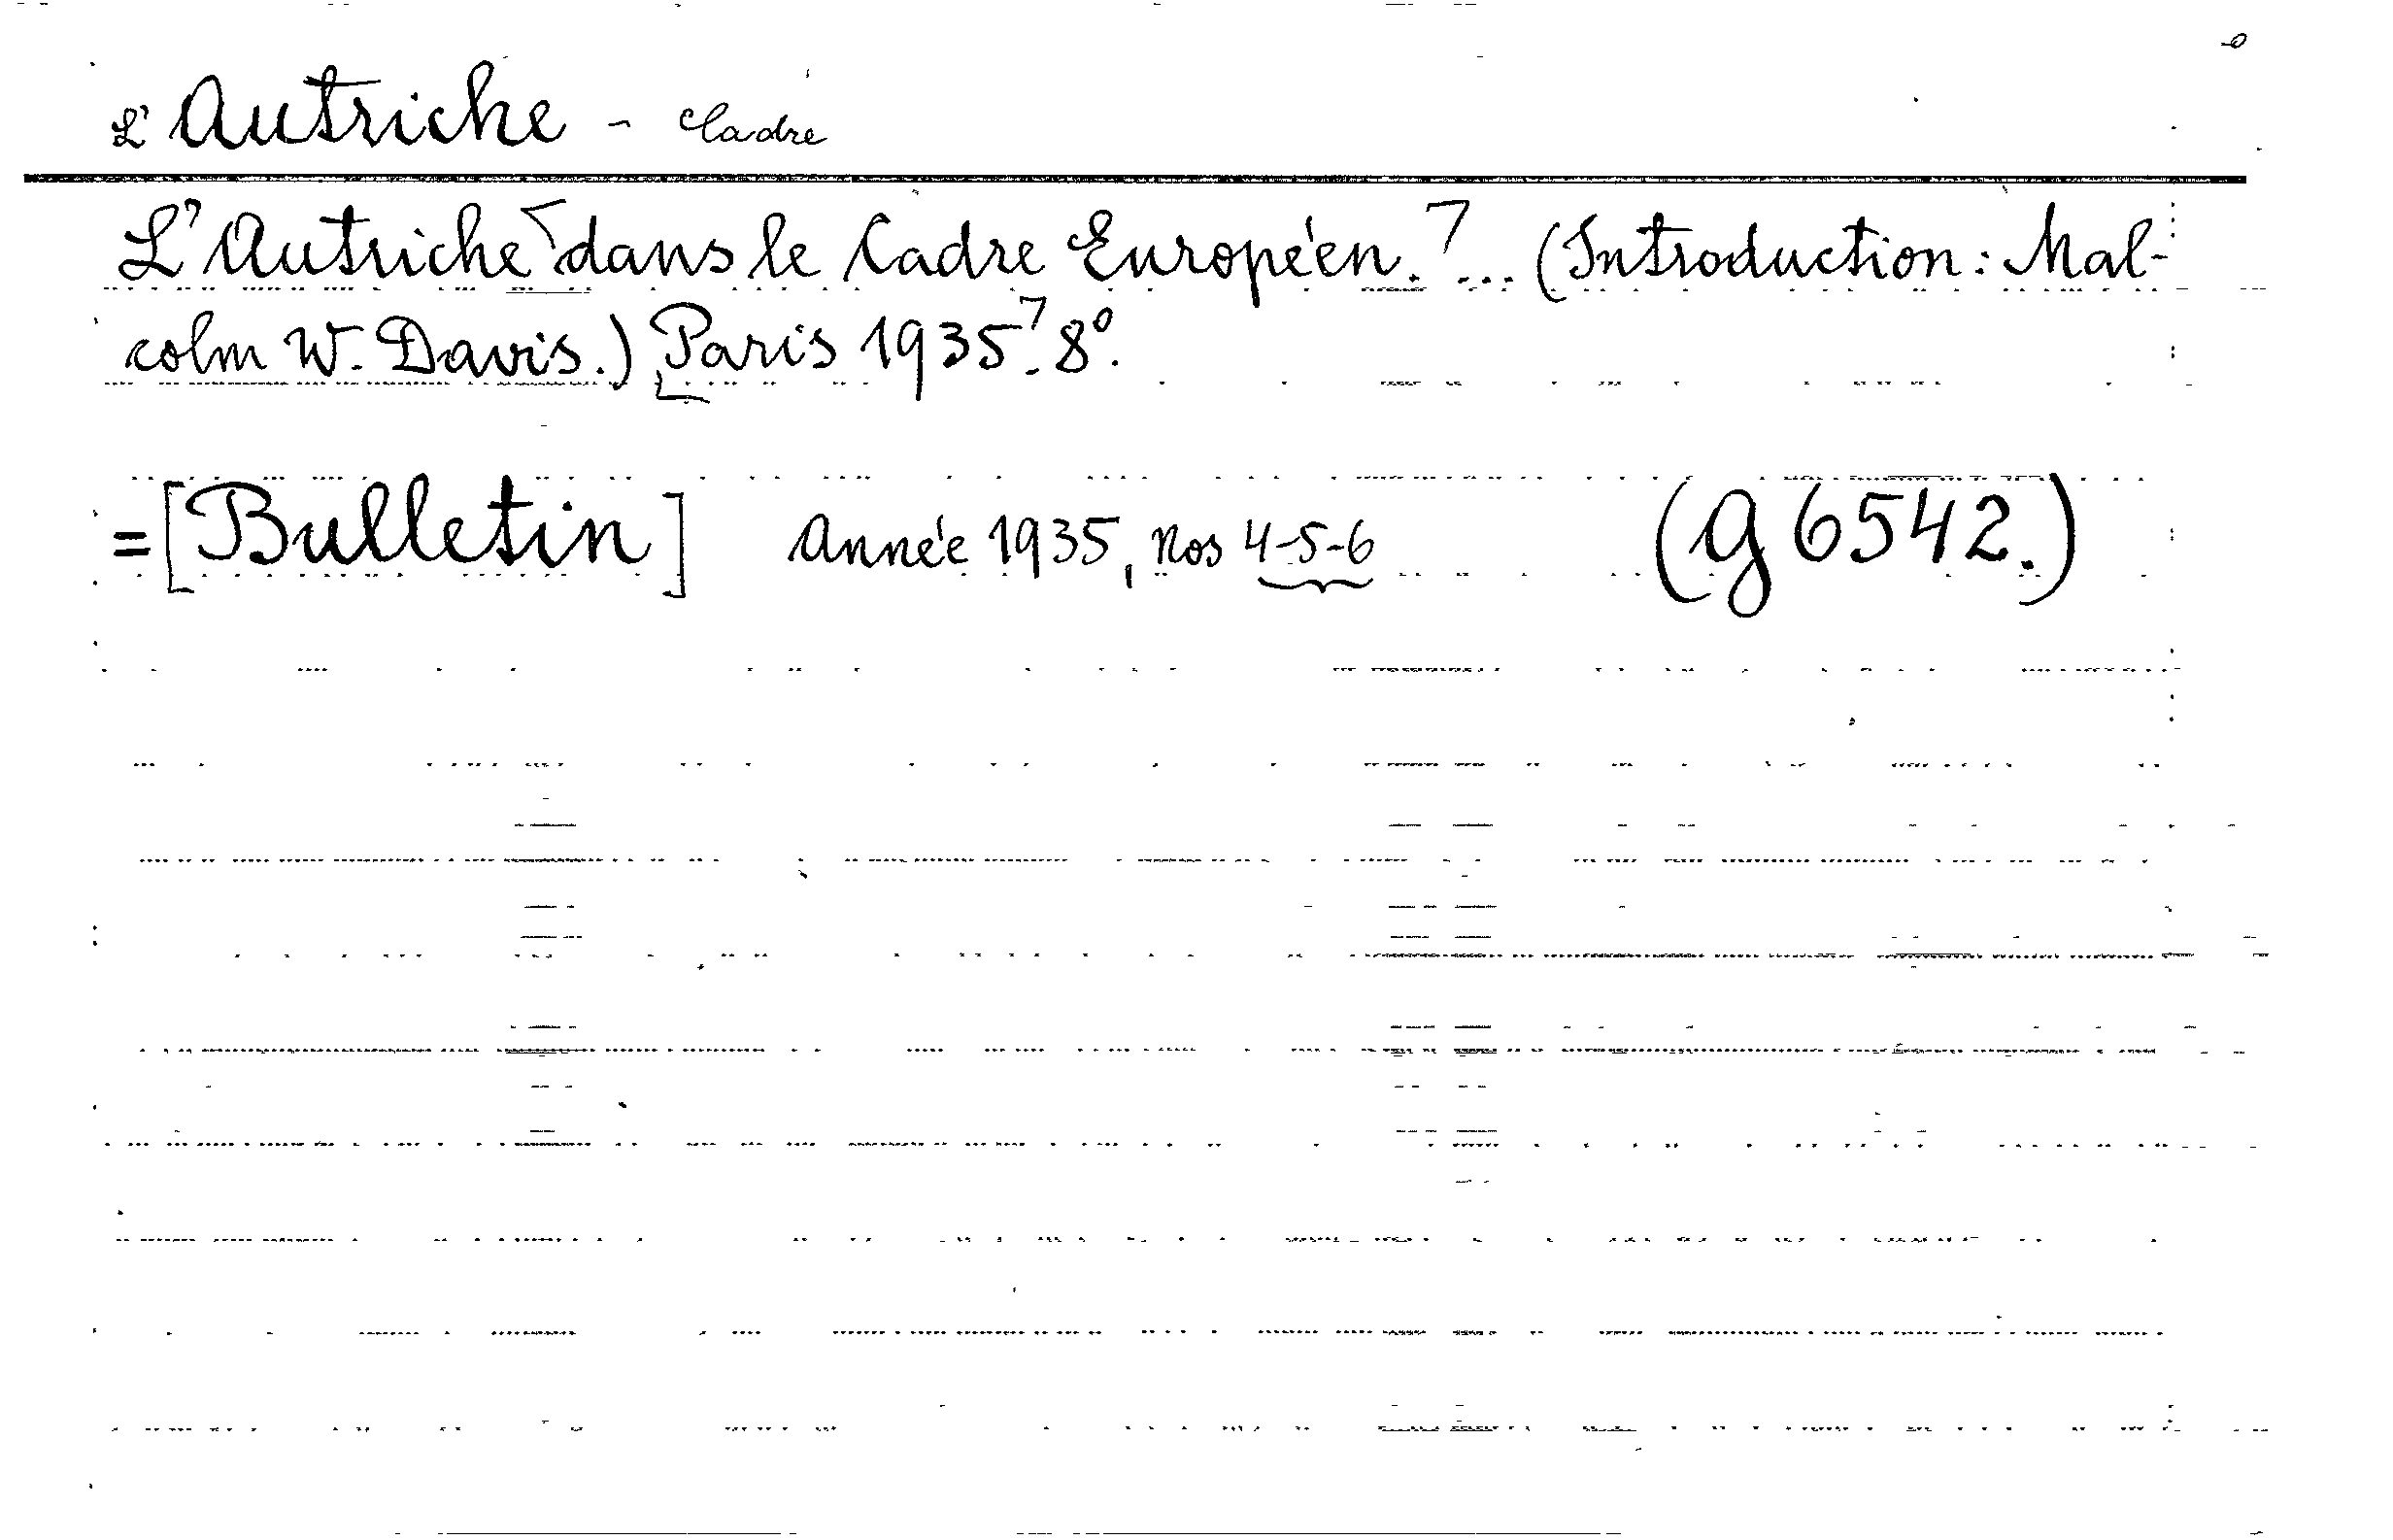 L' Autriche - Cadre
L'Autriche dans le Cadre Européen. ... (Introduction: Mal-
colm W. Davis.) Paris 1935. 8°.
=[Bulletin] Année 1935, Nos 4-5-6 (G 6542.)